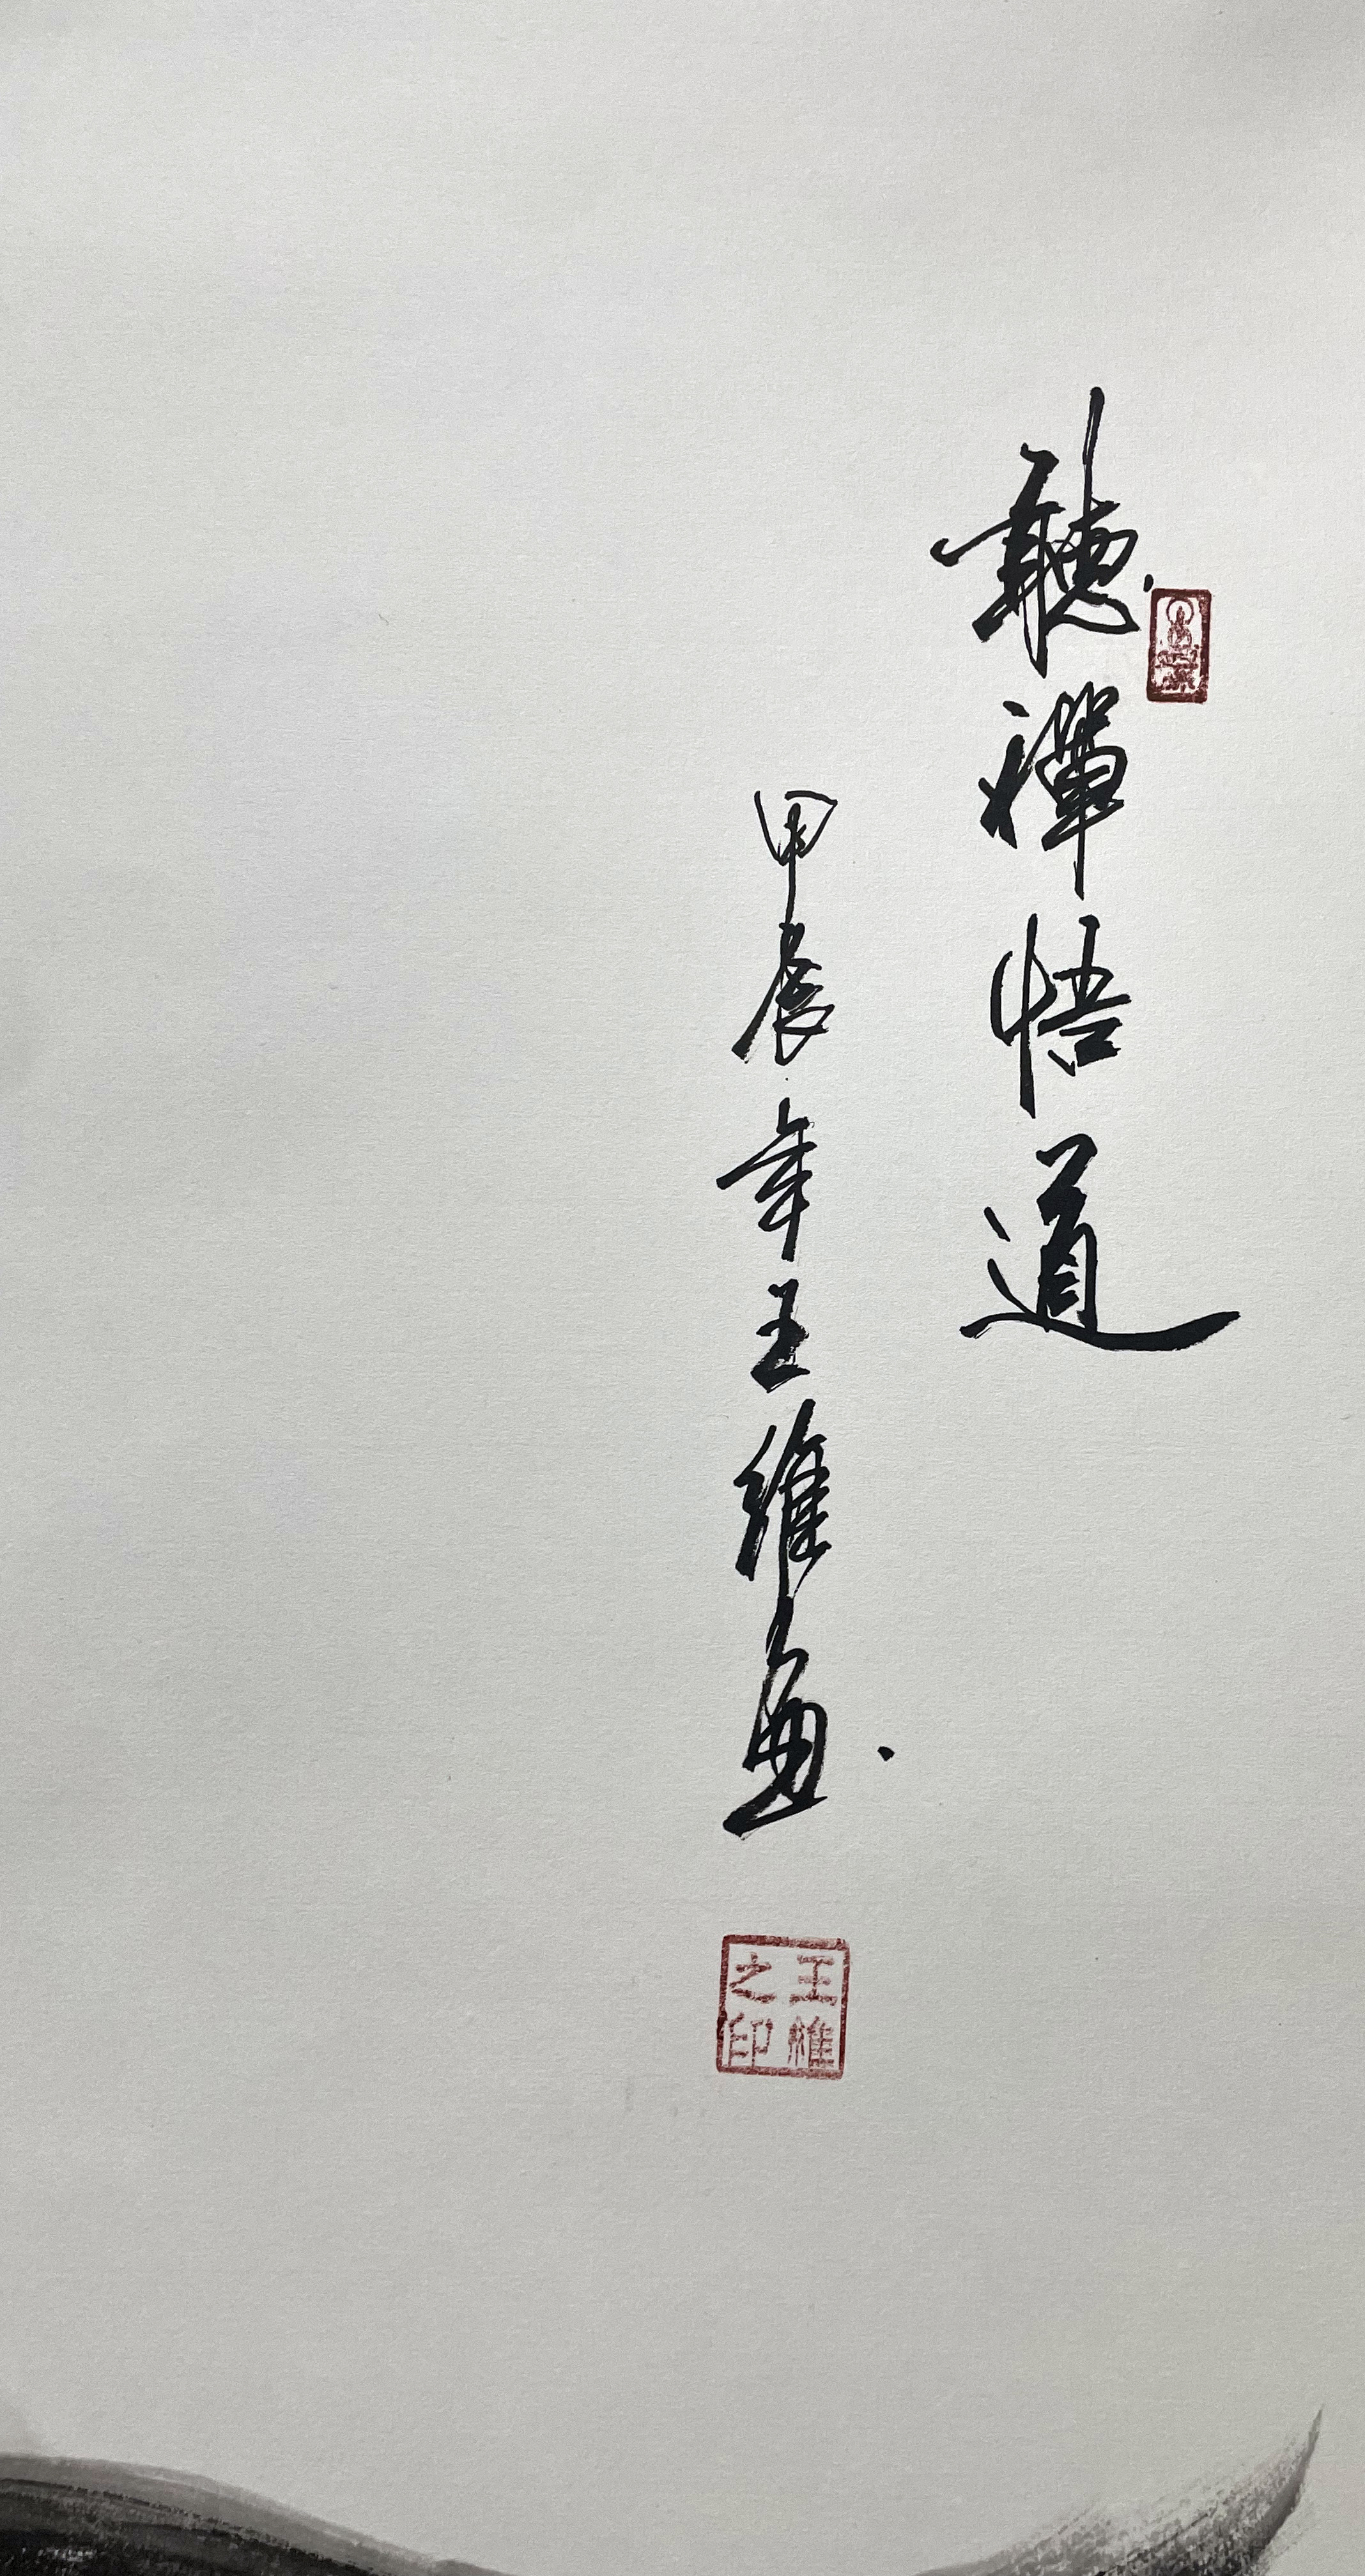 聽禪悟道
甲辰年王維画
王維之印